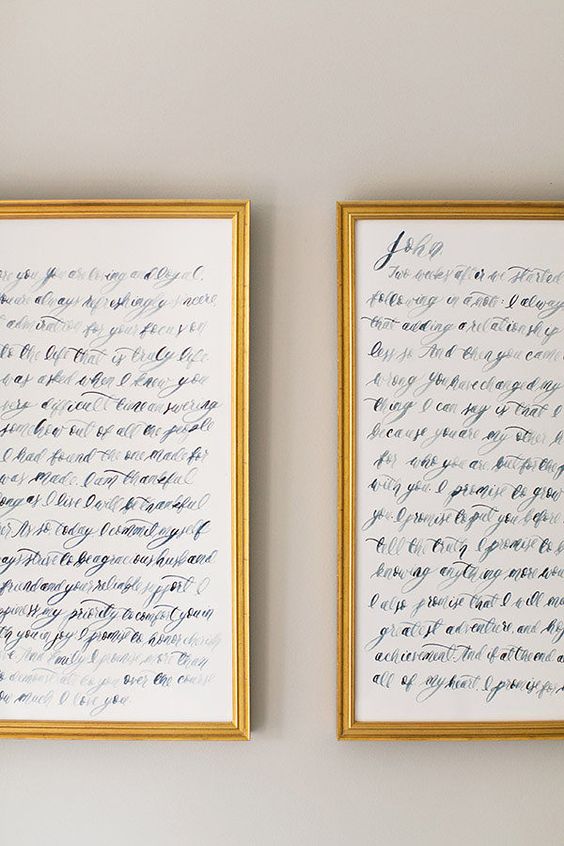 you. You are loving and loyal,
you are always refreshingly sincere
admiration for your focus on
to the life that is truly life.
was asked when I knew you
very difficult time answering
somehow out of all the people
I had found the one made for
was made. I am thankful
long as I live I will be thankful
So, today I commit myself
strive to be a gracious husband
friend and your reliable support. I
happiness my priority, to comfort you in
you in joy. I promise to honor, cherish
And Emily, I promise, more than
to demonstrate to you over the course
you much I love you.
John,
Two weeks after we started
following in a note: I always
that adding a relationship
less so. And then you came
wrong. You have changed my
thing I can say is that I
because you are my other h
for who you are, but for the p
with you. I promise to grow
you. I promise to put you before
tell the truth. I promise to b
knowing anything more wou
I also promise that I will
greatest adventure, and
achievement. And if at the end
all of my heart. I promise